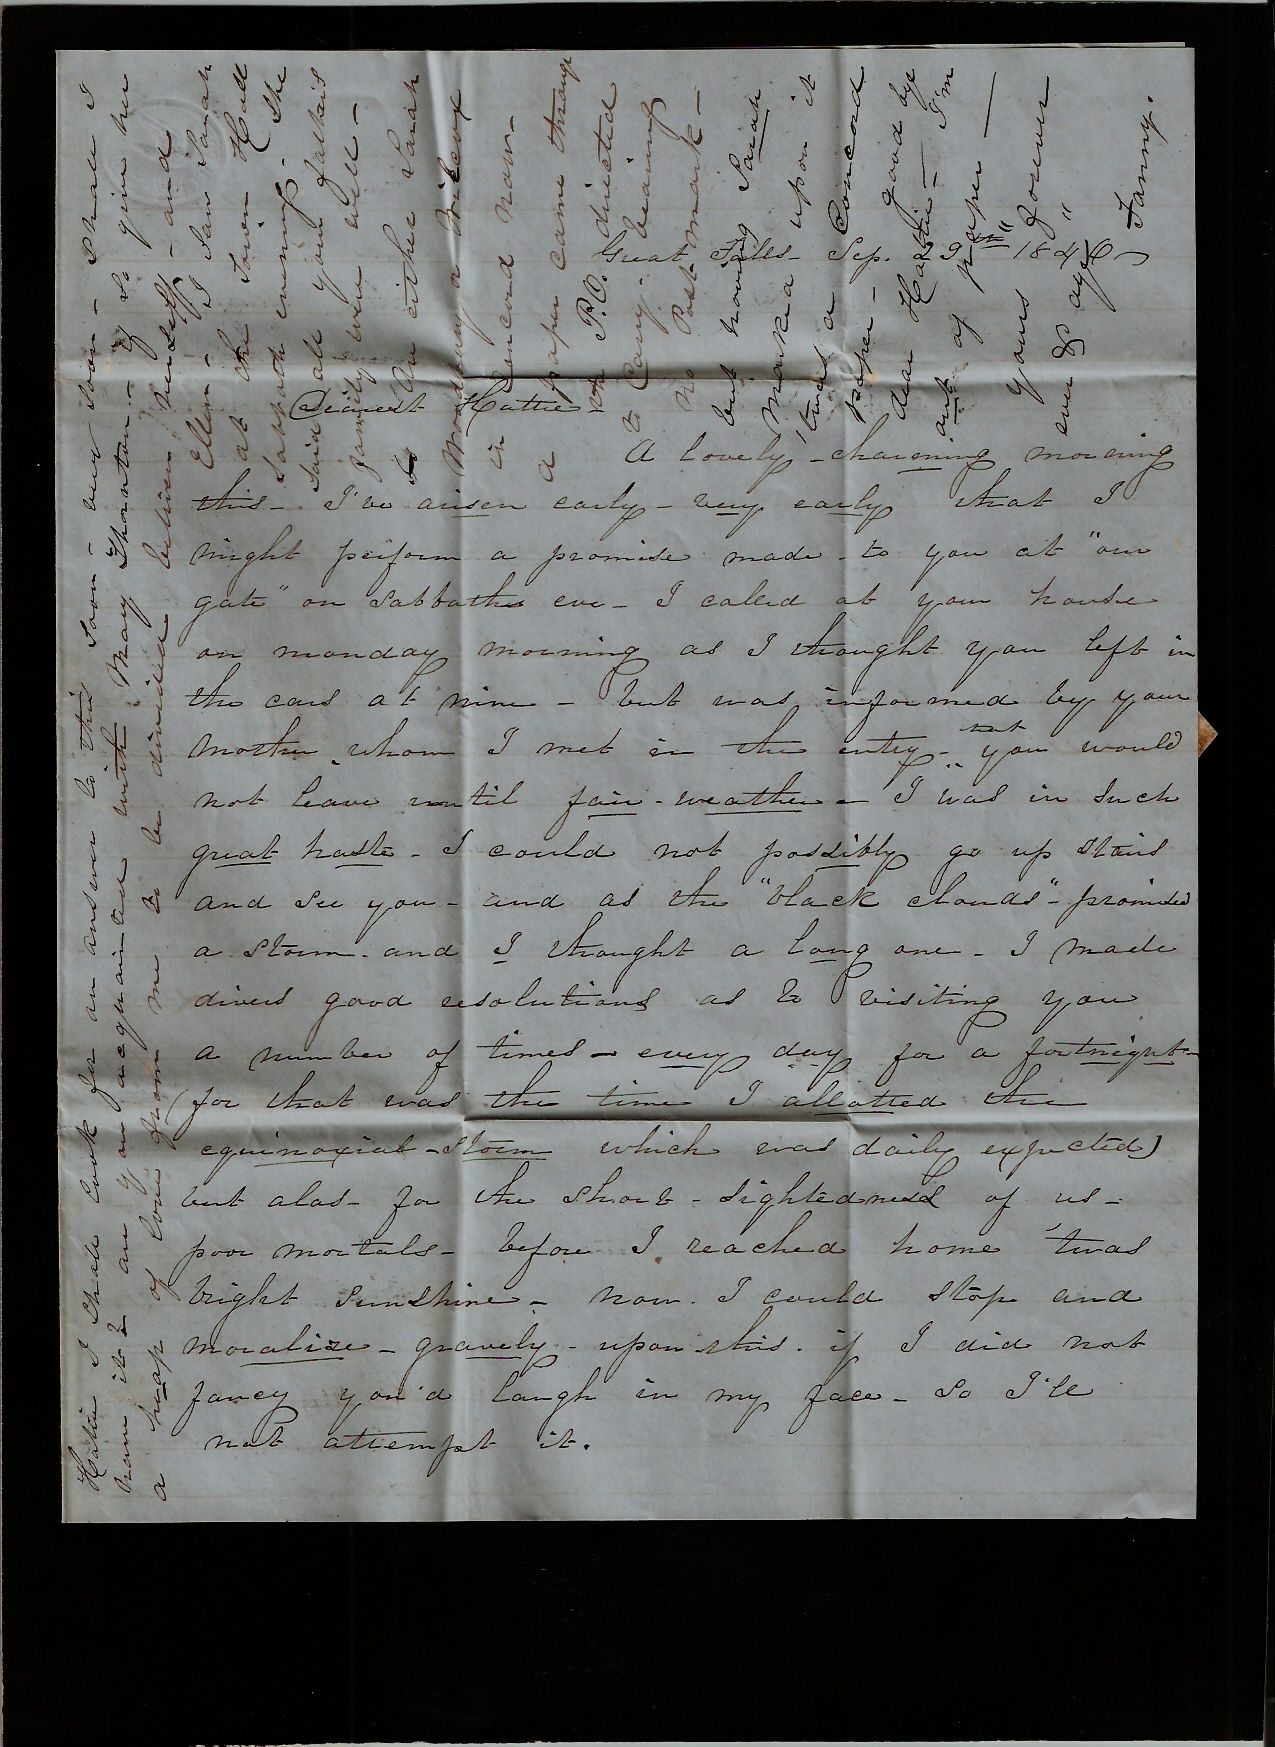 Great Falls - Sep. 9th 1846 -
Dearest Hattie -
A lovely - charming morning
this - I've arisen early - very early that I
might perform a promise made to you at "our
gate" on Sabbath eve - I called at your house
on monday morning as I thought you left in
the cars at nine - but was informed by your
Mother whom I met in the entry - that you would
not leave until fair - weather - I was in such
great haste - I could not possibly go up stairs
and see you - and as the "black clouds" - promised
a storm - and I thought a long one - I made
divers good resolutions as to visiting you
a number of times - every day for a fortnight -
(for that was the time I allotted the
equinoxial - storm which was daily expected)
but alas - for the short - sightedness of us -
poor mortals - before I reached home 'twas
bright sunshine - now I could stop and
moralize - gravely - upon this - if I did not
fancy you'd laugh in my face - so I'll
not attempt it.
Hattie I shall look for an answer to this soon - very soon - shall I
have it? & are you acquainted with Mary Thornton - if so give her
a heap of love from me to be divided between herself - and
Ellen - I saw Sarah
at the Town Hall
Sabbath evening - She
said all your father's
family were well -
An either Sarah
Woodbury or Wilcox
in Concord now -
a paper came through
the P.O. directed
to Cary - bearing
no Post mark -
but having Sarah
marked upon it
'twas a Concord
paper - good bye
dear Hattie - I'm
out of paper -
yours "forever
ever & aye"
Fanny.